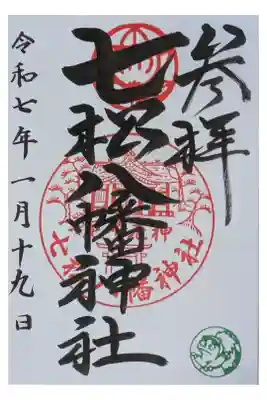 参拝
七松八幡神社
令和七年一月十九日
七松八幡神社